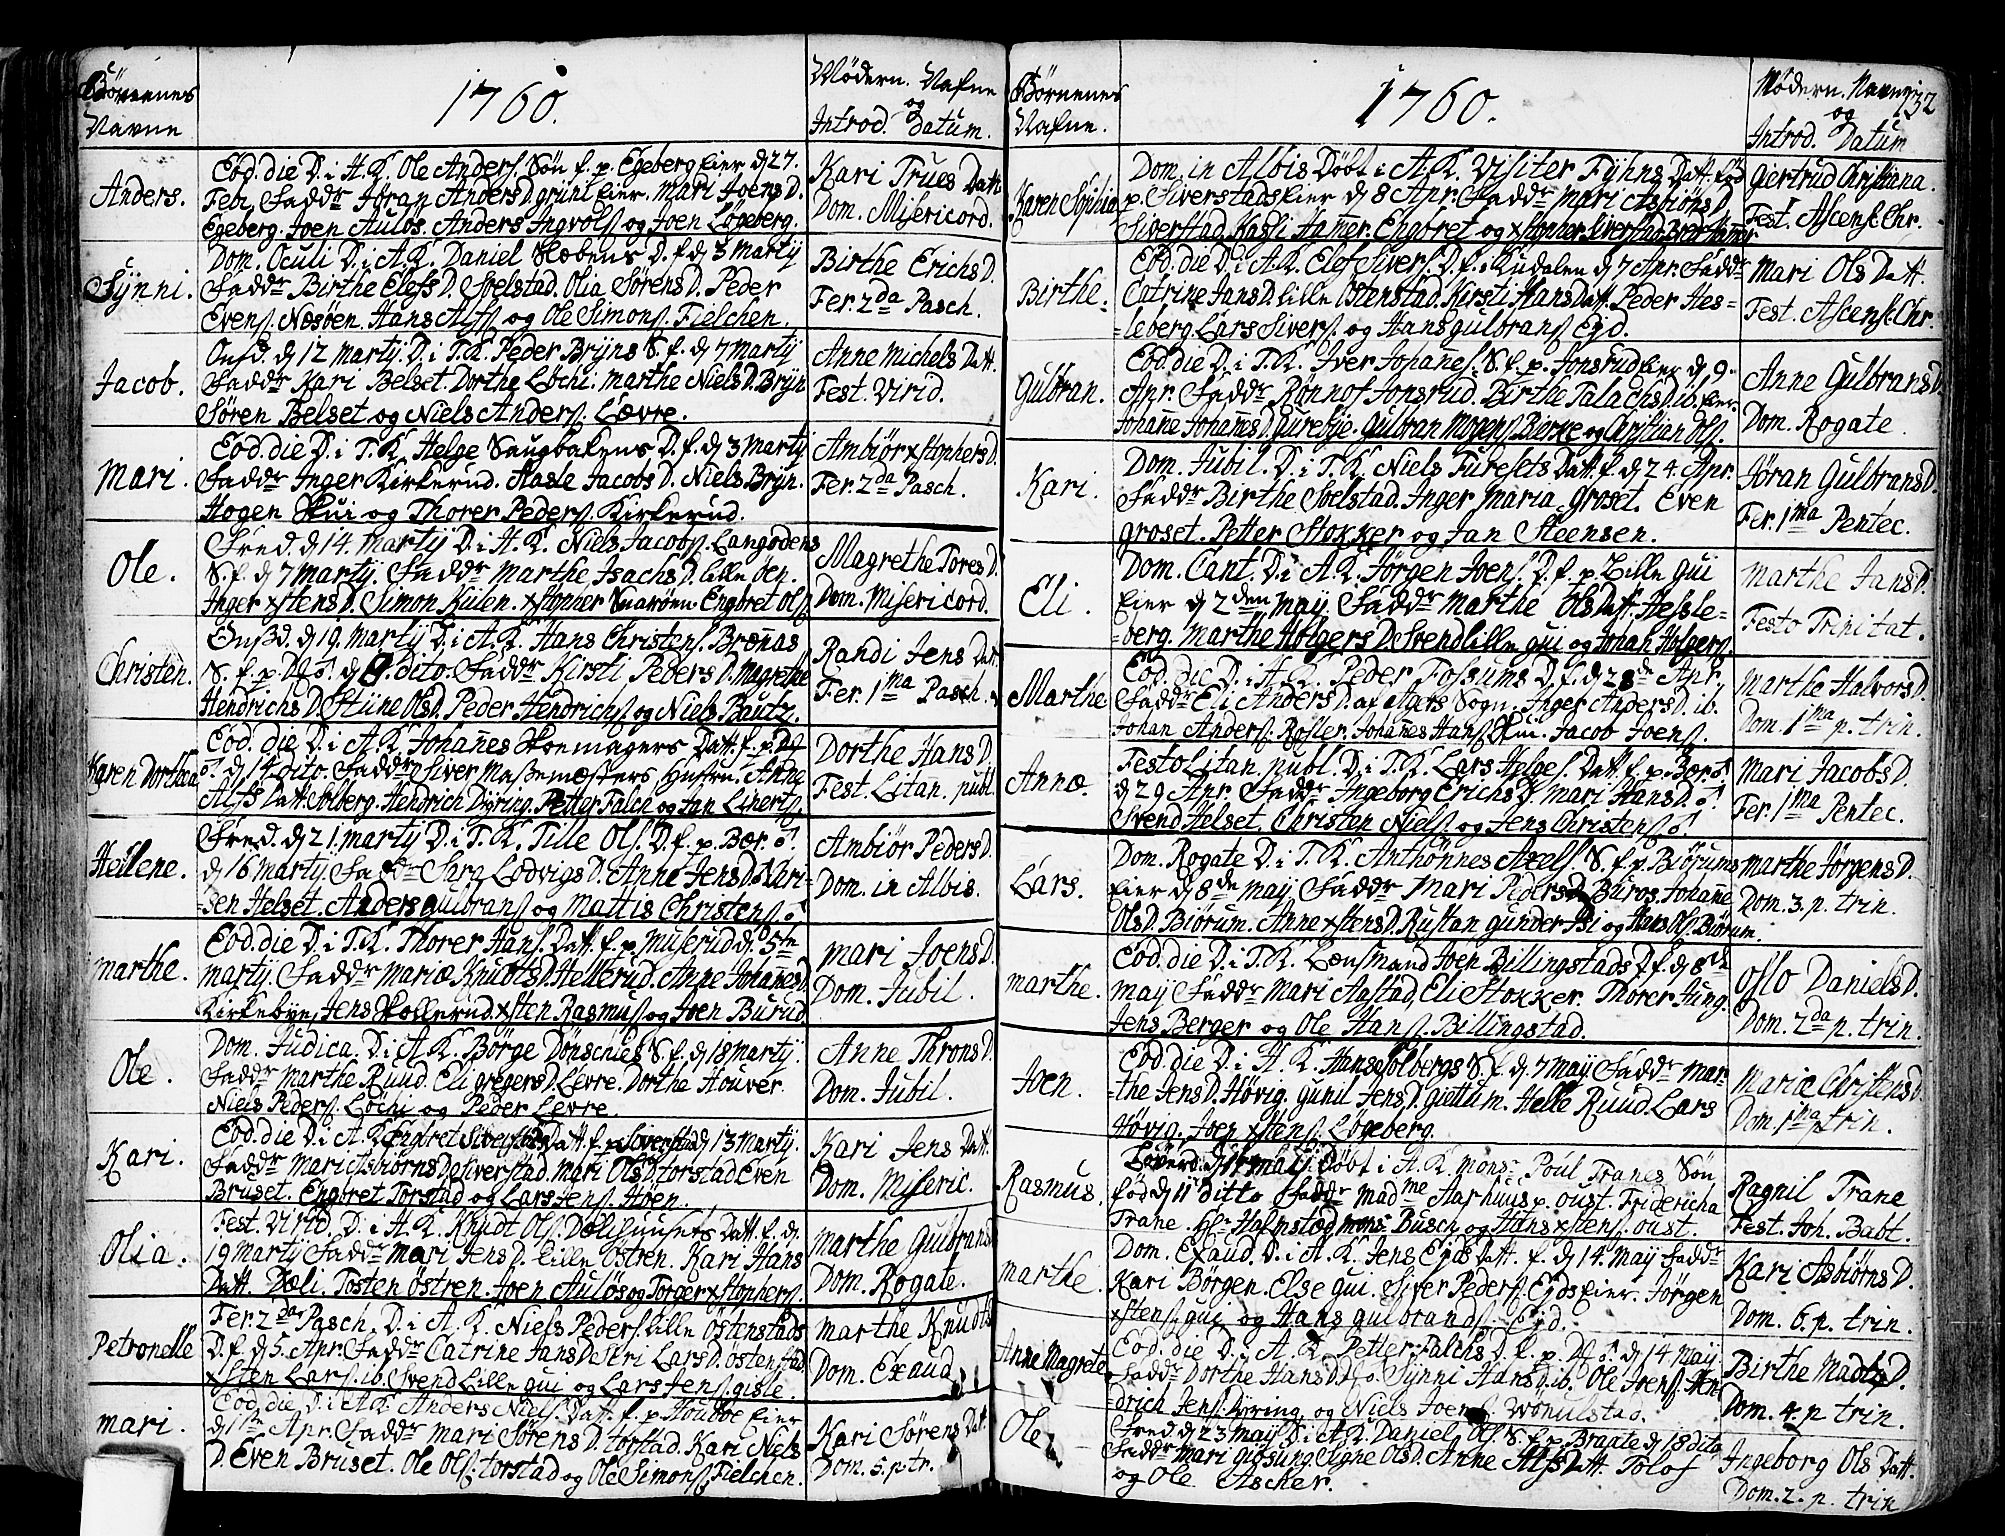 Børnenes
Navne
1760.
Mødern. Nafne
og
Introd. Datum.
Anders.
Eod. die D. i A.K. Ole Anders. Søn f. p. Egeberg Eier d 27.
Febr. Faddr Jøran Anders D. Grini Eier. Mari Joens D.
Egeberg. Joen Aulos. Anders Ingvols. og Joen Løgeberg.
Kari Trues Datt.
Dom. Misericord.
Synni.
Dom. Oculi D. i A.K. Daniel D. f. d 3 Marty
Faddr Birthe Elefs D. Soelstad. Olia Sørens D. Peder
Evens. Næsøen. Hans Alfs. og Ole Simons. Fielchen.
Birthe Erichs D.
Fer. 2da Pasch.
Jacob.
Onsd. d 12 Marty. D. i T.K. Peder Bryns S. f. d 7 Marty
Faddr Kari Belset. Dorthe Løchi. Marthe Niels D. Bryn
Søren Belset og Niels Anders. Lævre.
Anne Michels Datt.
Fest. Virid.
Mari.
Eod. die D. i T.K. Helge Saugbakens D. f. d 3 Marty
Faddr Inger Kirkerud. Aasle Jacobs D. Niels Bryn.
Hogen Skui og Thorer Peders. Kirkerud.
Ambiør xstophers D.
Fer. 2da Pasch.
Ole.
Fred. d 14. Marty D. i A.K. Niels Jacobs. Langodens
S. f. d 7 Marty. Faddr Marthe Isachs D. lille øen.
Inger xstens D. Simon Kulen. xstopher Snarøen. Engbret Ols.
Magrethe Tores D.
Dom. Misericord.
Christen.
Onsd. d 19. Marty D. i A.K. Hans Christens. Brænas
S. f. p. d dito. Faddr Kirsti Peders D. Magrethe
Hendrichs D. Stine Ols D. Peder Hendrichs. og Niels Bautz.
Randi Jens Datt.
Fer. 1ma Pasch.
Karen Dorthea
Eod. die D. i A.K. Johannes Skoemagers Datt. f. p.
d 14 dito. Faddr Siver Massemesters Hustru. Anne
Alfs Datt. Solberg. Hendrich Dyring. Petter Falch og Jan Liberts.
Dorthe Hans D.
Fest. Litan. publ.
Hellene.
Fred. d 21. Marty D. i T.K. Tille Ols. D. f. p. Bær. ♂
d 16 Marty Faddr Sara Lodvigs D. Anne Jens D. ♂ Kari-
=sen Helset. Anders Gulbrans. og Mattis Christens. ♂
Ambiør Peders D.
Dom. in Albis.
Marthe.
Eod. die D. i T.K. Thorer Hans. Datt. f. p. Muserud d. 5te
Marty. Faddr Mariæ Knudts D. Hellerud. Anne Johannes D.
Kirkebye, Jens Skollerud. xsten Rasmus. og Joen Burud
Mari Joens D.
Dom. Jubil.
Ole.
Dom. Judica. D. i A.K. Børge Dønschies S. f. d 18 Marty.
Faddr Marthe Ruud. Eli Gregers D. Levre. Dorthe Houver.
Niels Peders. Løchi og Peder Levre.
Anne Throns D.
Dom. Jubil.
Kari.
Eod. die D. i A.K. Engbret Datt. f. p. Siverstad d 13 Marty.
Faddr Mari Asbiørns D. Siverstad. Mari Ols D. Torstad Even
Bruset. Engbret Torstad og Lars Jens. Hoen.
Kari Jens Datt.
Dom. Miseric.
Olia.
Fest. Virid. D. i A.K. Knudt Ols. Datt. f. d.
19 Marty Faddr Mari Jens D. lille Østren. Kari Hans
Datt. Dæli. Tosten Østren. Joen Auløs og Torger xstophers.
Marthe Gulbrans
Dom. Rogate.
Petronelle
Fer. 2da Pasch. D. i A.K. Niels Peders. lille Østenstads
D. f. d 5. Apr. Faddr Catrine Jans D. Siri Lars D. Østenstad
xsten Lars. ib. Svend Lille Gui og Lars Jens. Gisle.
Marthe Knudts
Dom. Exaud.
Mari.
Eod. die D. i A.K. Anders Niels. Datt. f. p. Eier
d 1ste Apr. Faddr Mari Sørens D. Torstad. Kari Niels
D. Even Bruset. Ole Ols. Torstad og Ole Simons. Fielchen.
Kari Sørens Datt.
Dom. 5. p. tr.
Børnenes
Nafne.
1760.
Mødern. Navne
og
Introd. Datum
132
Karen Sophia
Dom. in Albis Døbt i A.K. Visiter Fyhns Datt. fød
p. Siverstads Eier d 8 Apr. Faddr Mari Asbiøns D.
Siverstad. Kasti Hammer. Engbret og xstopher Siverstad.
Giertrud Christiana.
Fest. Ascens. Chr.
Birthe.
Eod. die D. i A.K. Elef Sivers. D. f. i Rudalen d 7 Apr. Faddr
Catrine Jans D. lille Østenstad. Kirsti Hans Datt. Peder Hes-
=leberg. Lars Sivers. og Hans Gulbrans. Eyd.
Mari Ols Datt.
Fest. Ascens. Chr.
Gulbran.
Eod. die D. i T.K. Iver Johannes. S. f. p. Jonsrud Eier d 9-
Apr. Faddr Rønnof Jonsrud. Birthe Palachs D. ib. Eier.
Johanne Johannes D. Gurebye. Gulbran Mogens. Bierke og Christian Ols.
Anne Gulbrans D.
Dom. Rogate.
Kari.
Dom. Jubil. D. i T.K. Niels Turesets Datt. f. d 24. Apr.
Faddr Birthe Soelstad. Inger Maria Groset. Even
Groset. Petter Stokker og Jan Steensen.
Jøran Gulbrans D.
Fer. 1ma Pentec.
Eli.
Dom. Cant. D. i A.K. Jørgen Joens. D. f. p. Lille Gui
Eier d 2den May. Faddr Marthe Ols Datt. Hessle-
=berg. Marthe Holgers D. Svend Lille Gui og Johan Holgers.
Marthe Jans D.
Festo Trinitat.
Marthe
Eod. die D. i A.K. Peder Fossums D. f. d 28de Apr.
Faddr Eli Anders D. af Agers Sogn. Inger Anders D. ib.
Johan Anders. Røsler. Johannes Hans. Skui. Jacob Joens.
Marthe Halvors D.
Dom. 1ma p. trin.
Annæ.
Festo Litan. publ. D. i T.K. Lars Helges. Datt. f. p. Bær. ♂
d 29 Apr. Faddr Ingeborg Erichs D. Mari Hans D. ♂
Svend Helset. Christen Niels. og Jens Christens. ♂
Mari Jacobs D.
Fer. 1ma Pentec.
Lars.
Dom. Rogate D. i T.K. Anthønnes Axels. S. f. p. Biørums
Eier d 8de May Faddr Mari Peders D. Buros. Johanne
Ols D. Biorum. Anne xstens D. Rustan Gunder Isi og Hans Ols. Biørum.
Marthe Jørgens D.
Dom. 3. p. trin.
Marthe.
Eod. die D. i T.K. Lensmand Joen Billingstads D. f. d 8de
May Faddr Mari Aastad, Eli Stokker. Thorer Jung.
Jens Berger og Ole Hans. Billingstad.
Oslo Daniels D.
Dom. 2da p. trin.
Joen.
Eod. die D. i A.K. Hans Solbergs S. f. d 7 May Faddr Mar-
=the Jens D. Høvig. Gunil Jens D. Giettum. Helle Ruud. Lars
Høvig. Joen xstens. Løgeberg.
Mariæ Christens D.
Dom. 1ma p. trin.
Rasmus.
Løverd. d 17 May Døbt i A.K. Monsr. Poul Tranes Søn
fød d 11 ditto Faddr Madme Aarhuus p. Oust. Fridericha
Trane. Hr. Holmsted. Monsr. Busch og Hans xstens. Oust.
Ragnil Trane
Fest. Joh. Babt.
Marthe.
Dom. Exaud. D. i A.K. Jens Eyds Datt. f. d 14. May Faddr
Kari Børgen. Else Gui. Siver Peders. Eyds Eier. Jørgen
xstens. Gui og Hans Gulbrands. Eyd.
Kari Asbiørns D.
Dom. 6. p. trin.
Anne Magrete
Eod. die D. i A.K. Petter Falchs D. f. p. ♂ d 14 May
Faddr Dorthe Hans D. Synni Hans D. ib. Ole Joens. Hen-
drich Jens. Dyring og Niels Joens. Wøhulstad.
Birthe Madts D.
Dom. 4. p trin.
Ole.
Fred. d 23 May D. i A.K. Daniel Ols. S. f. p. Braate d 18 dito
Faddr Mari Giøsung. Signe Ols D. Anne Alfs Datt. Tolof
og Ole Ascher.
Ingeborg Ols Datt.
Dom. 2. p. trin